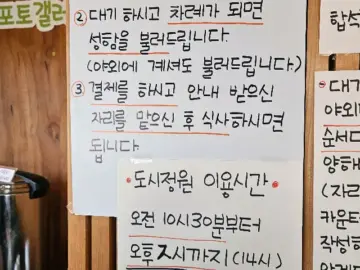 포토갤러
② 대기 하시고 차례가 되면
성함을 불러드립니다.
(야외에 계셔도 불러드립니다.)
③ 결제를 하시고 안내 받으신
자리를 맡으신 후 식사하시면
됩니다
• 도시정원 이용시간 •
오전 10시30분부터
오후 2시까지 (14시)
합석
대기
야외
순서다
양해
(자리
카운터
작성하